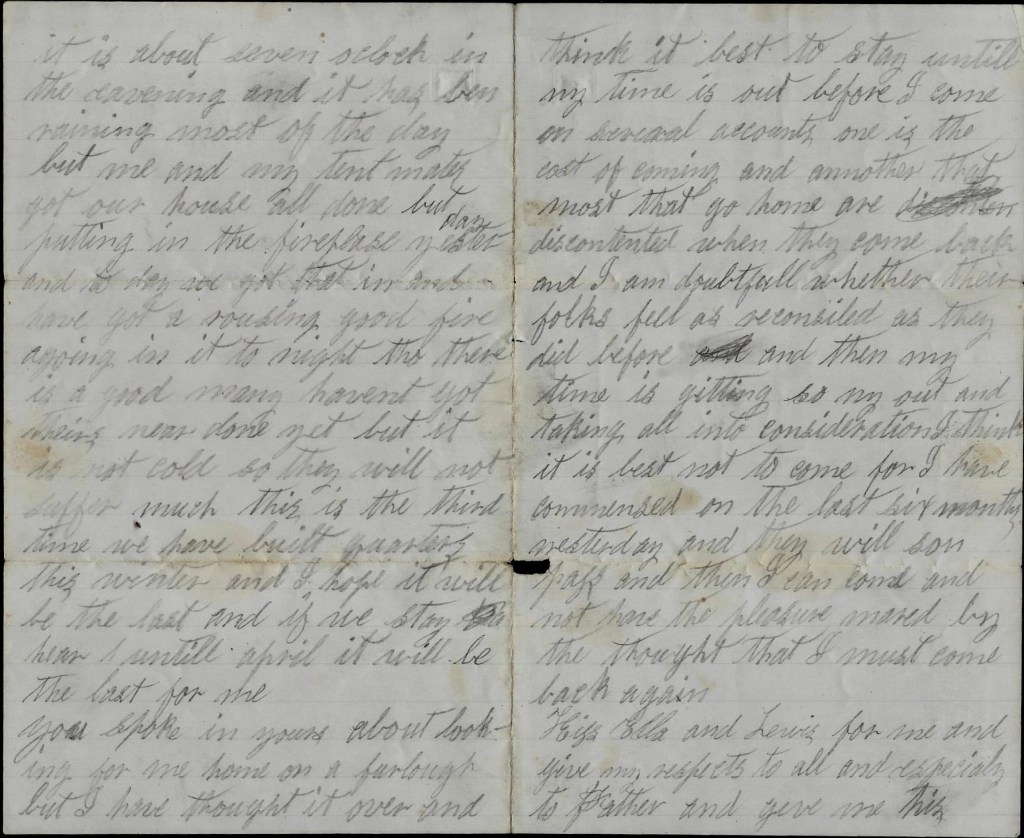 it is about seven oclock in
the eavening and it has ben
raining most of the day
but me and my tent mates
got our house all done but
putting in the fireplase yester
day
and to day we got that in and
have got a rousing good fire
agoing in it to night tho there
is a good many havent got
theirs near done yet but it
is not cold so they will not
suffer much this is the third
time we have built quarters
this winter and I hope it will
be the last and if we stay
hear untill april it will be
the last for me
you spoke in yours about look-
ing for me home on a furlough
but I have thought it over and
think it best to stay untill
my time is out before I come
on several accounts one is the
cost of coming and annother that
most that go home are
discontented when they come back
and I am doubtfull whether their
folks feel as reconsiled as they
did before and then my
time is gitting so ny out and
taking all into consideration I think
it is best not to come for I have
commensed on the last six months
yesterday and they will son
pass and then I can come and
not have the pleasure mared by
the thought that I must come
back again
Kiss Ella and Lewis for me and
give my respects to all and especialy
to Father and give me his